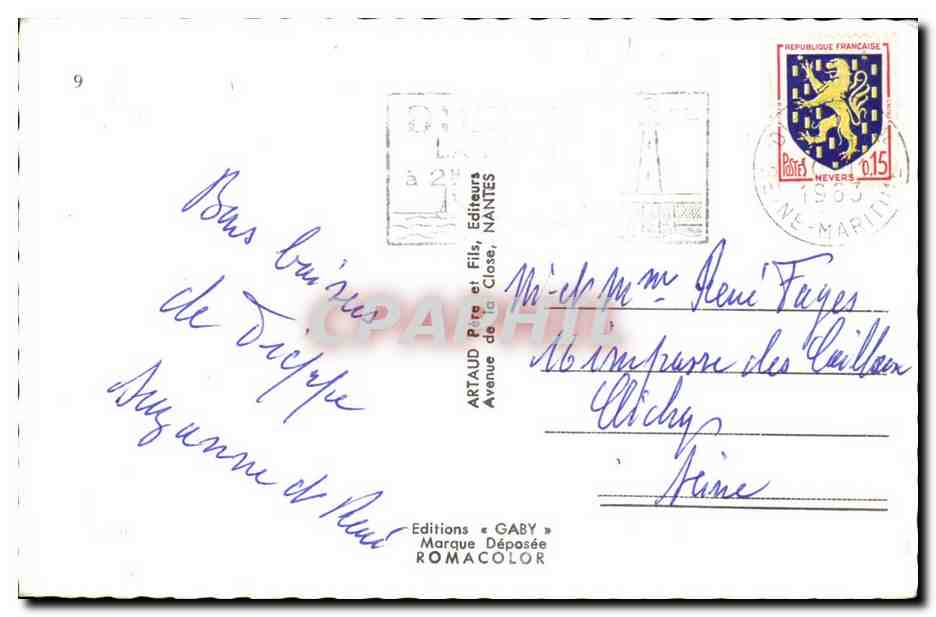 9
RÉPUBLIQUE FRANÇAISE
POSTES
0,15
NEVERS
à 2
SEINE-MARITIME
Bons baisers
de Dieppe
Suzanne et René
ARTAUD Père et Fils, Editeurs
Avenue de la Close, NANTES
CPARPHIL
M. et Mme René Fages
impasse des Cailloux
Clichy
Seine
Editions « GABY »
Marque Déposée
ROMACOLOR